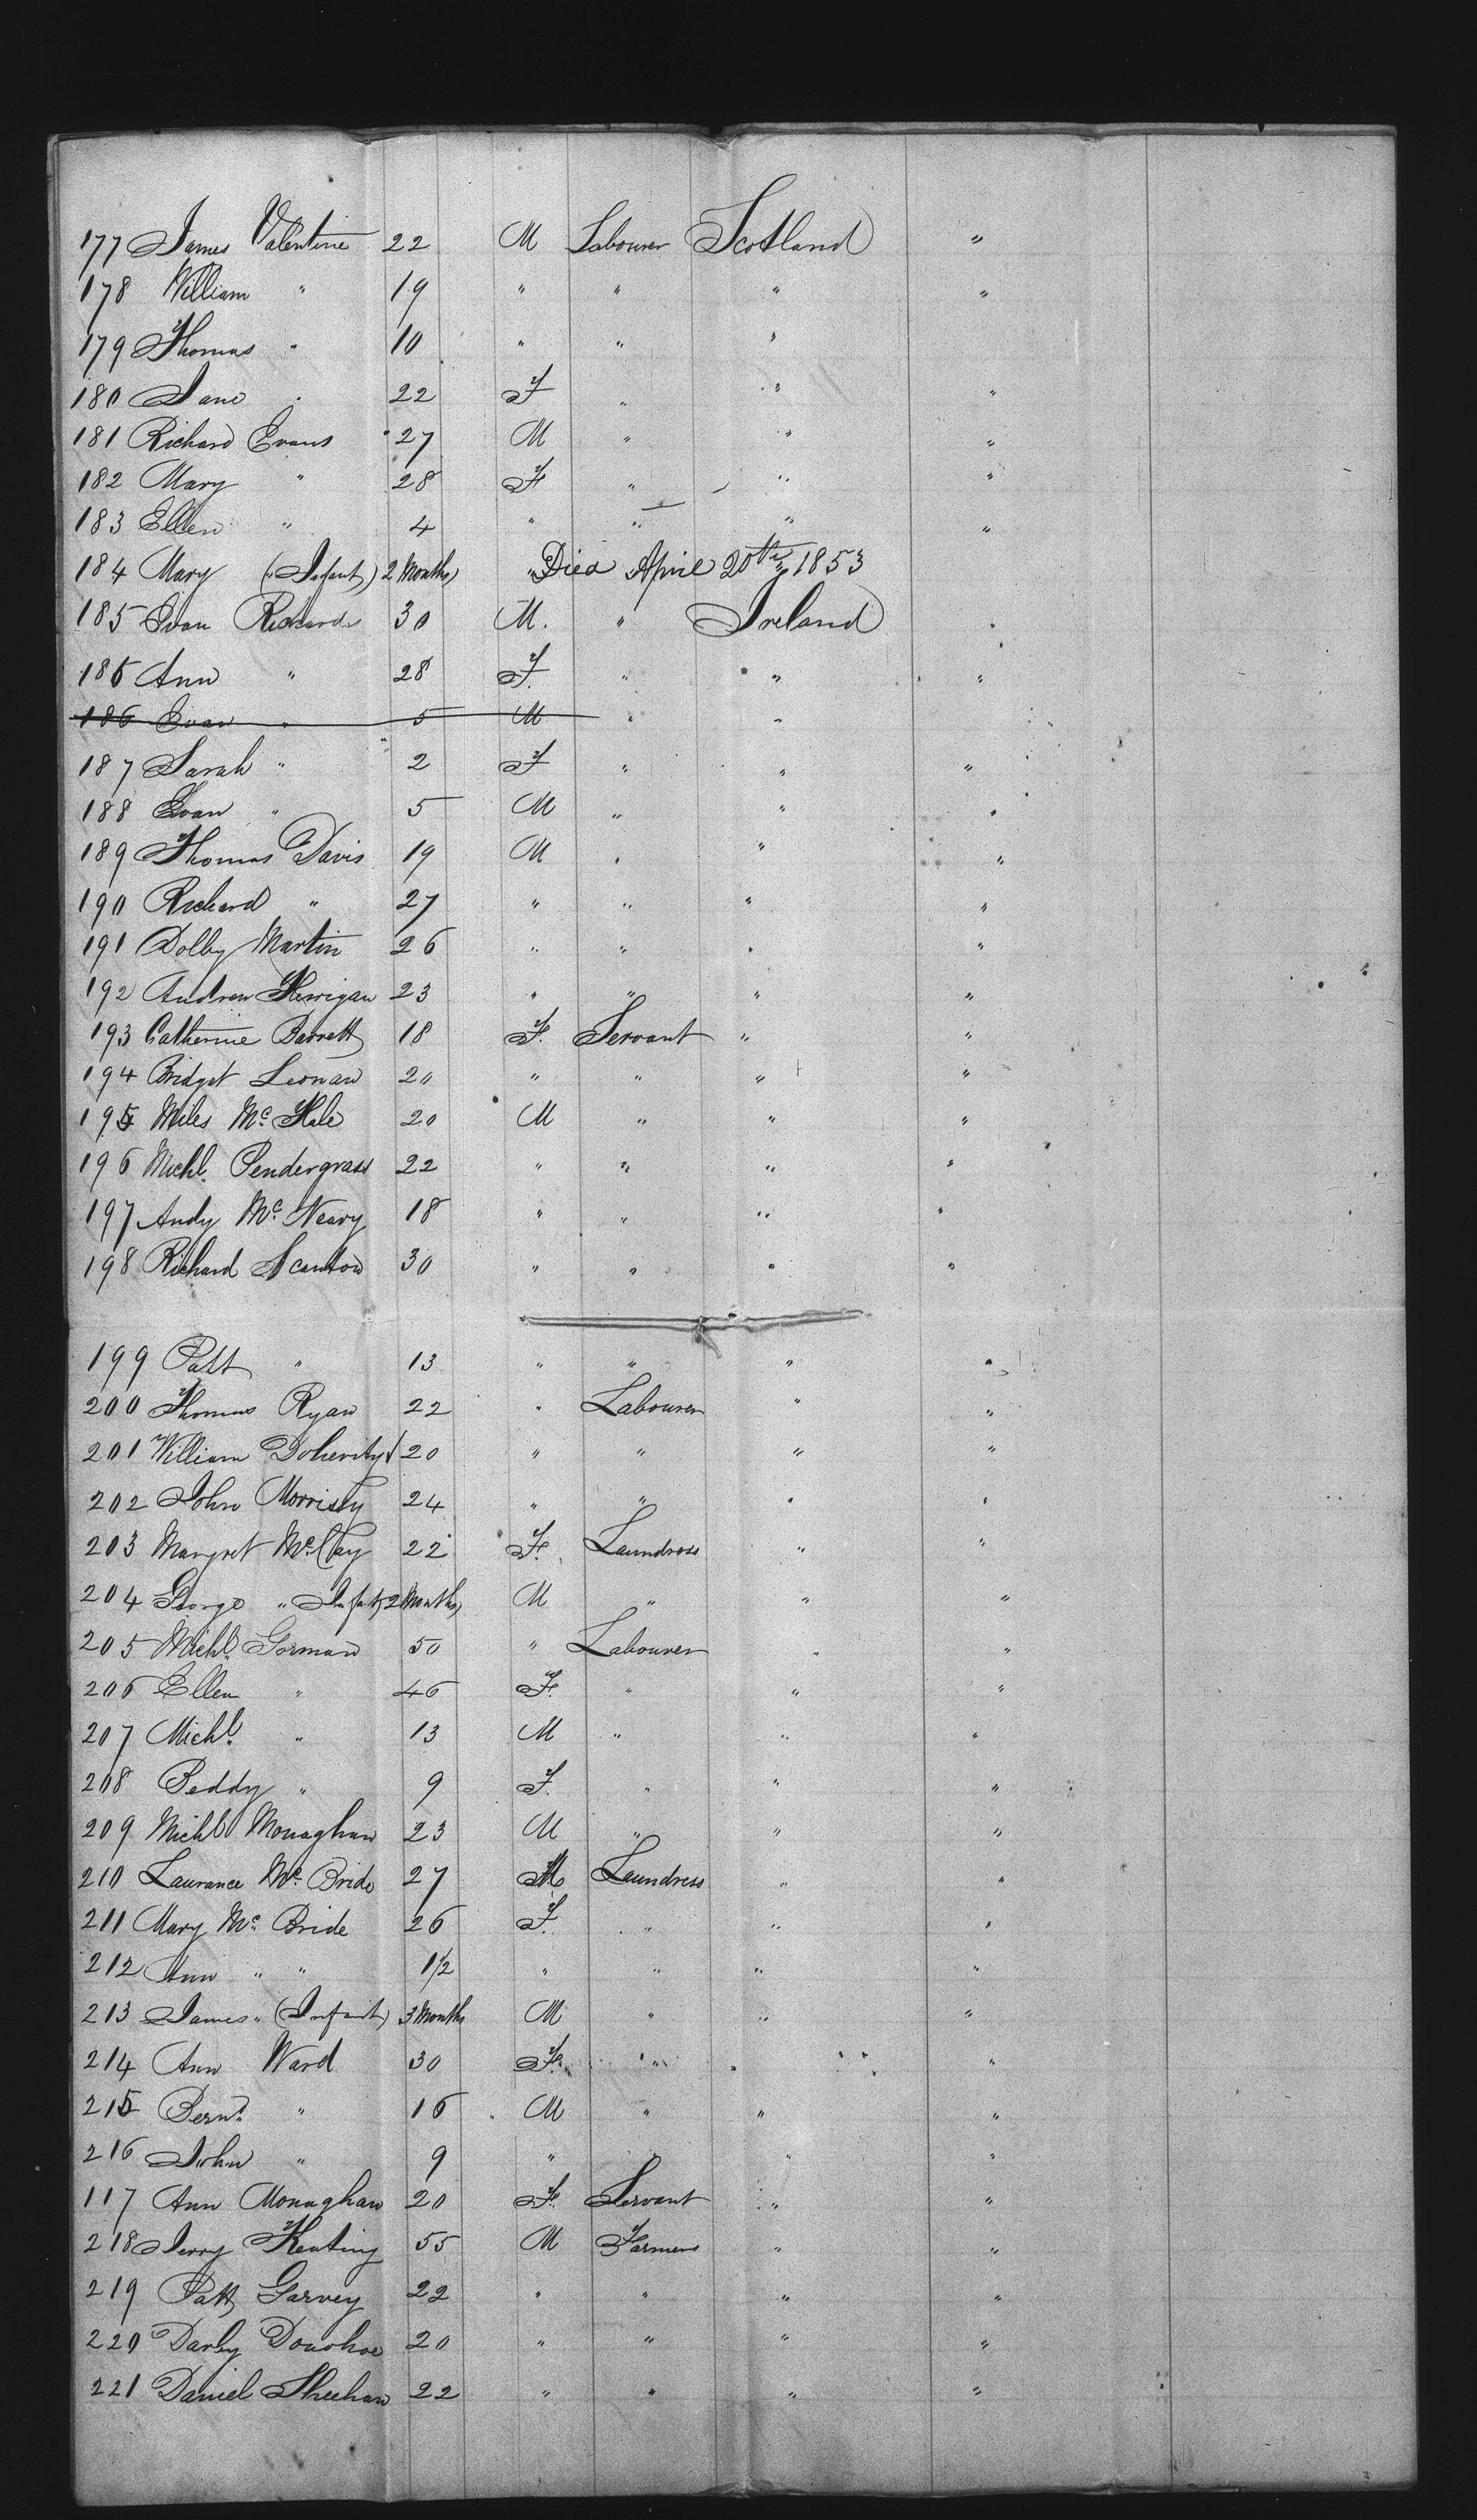 177 James Valentine 22 M Labourer Scotland "
178 William " 19 " " " "
179 Thomas " 10 " " "
180 Jane " 22 F " " "
181 Richard Evans 27 M " " "
182 Mary " 28 F " " "
183 Ellen " 4 " " " "
184 Mary (Infant) 2 Months " Died April 20th 1853
185 Evan Richards 30 M. " Ireland "
186 Ann " 28 F. " " "
186 Evan " 5 M " "
187 Sarah " 2 F " " "
188 Evan " 5 M " " "
189 Thomas Davis 19 M " " "
190 Richard " 27 " " " "
191 Dolby Martin 26 " " " "
192 Andrew Kerrigan 23 " " " "
193 Catherine Barrett 18 F. Servant " "
194 Bridget Leonan 20 " " " "
195 Miles Mc. Hale 20 M " " "
196 Michl. Pendergrass 22 " " " "
197 Andy Mc. Neavy 18 " " " "
198 Richard Scanton 30 " " " "
199 Patt " 13 " " " "
200 Thomas Ryan 22 " Labourer " "
201 William Doherity 20 " " " "
202 John Morrisy 24 " " " "
203 Margret Mc.Cay 22 F. Laundress " "
204 George " Infant 2 Months M " " "
205 Michl. Gorman 50 " Labourer " "
206 Ellen " 46 F. " " "
207 Michl. " 13 M " " "
208 Peddy " 9 F. " " "
209 Michl Monaghan 23 M " " "
210 Laurance Mc. Bride 27 M Laundress " "
211 Mary Mc. Bride 26 F. " " "
212 Ann " " 1 1/2 " " " "
213 James " (Infant) 3 Months M " " "
214 Ann Ward 30 F. " " "
215 Bernd. " 16 M " " "
216 John " 9 " " " "
117 Ann Monaghan 20 F. Servant " "
218 Jerry Keating 55 M Farmers " "
219 Patt Garvey 22 " " " "
220 Darby Donohoe 20 " " " "
221 Daniel Sheehan 22 " " " "